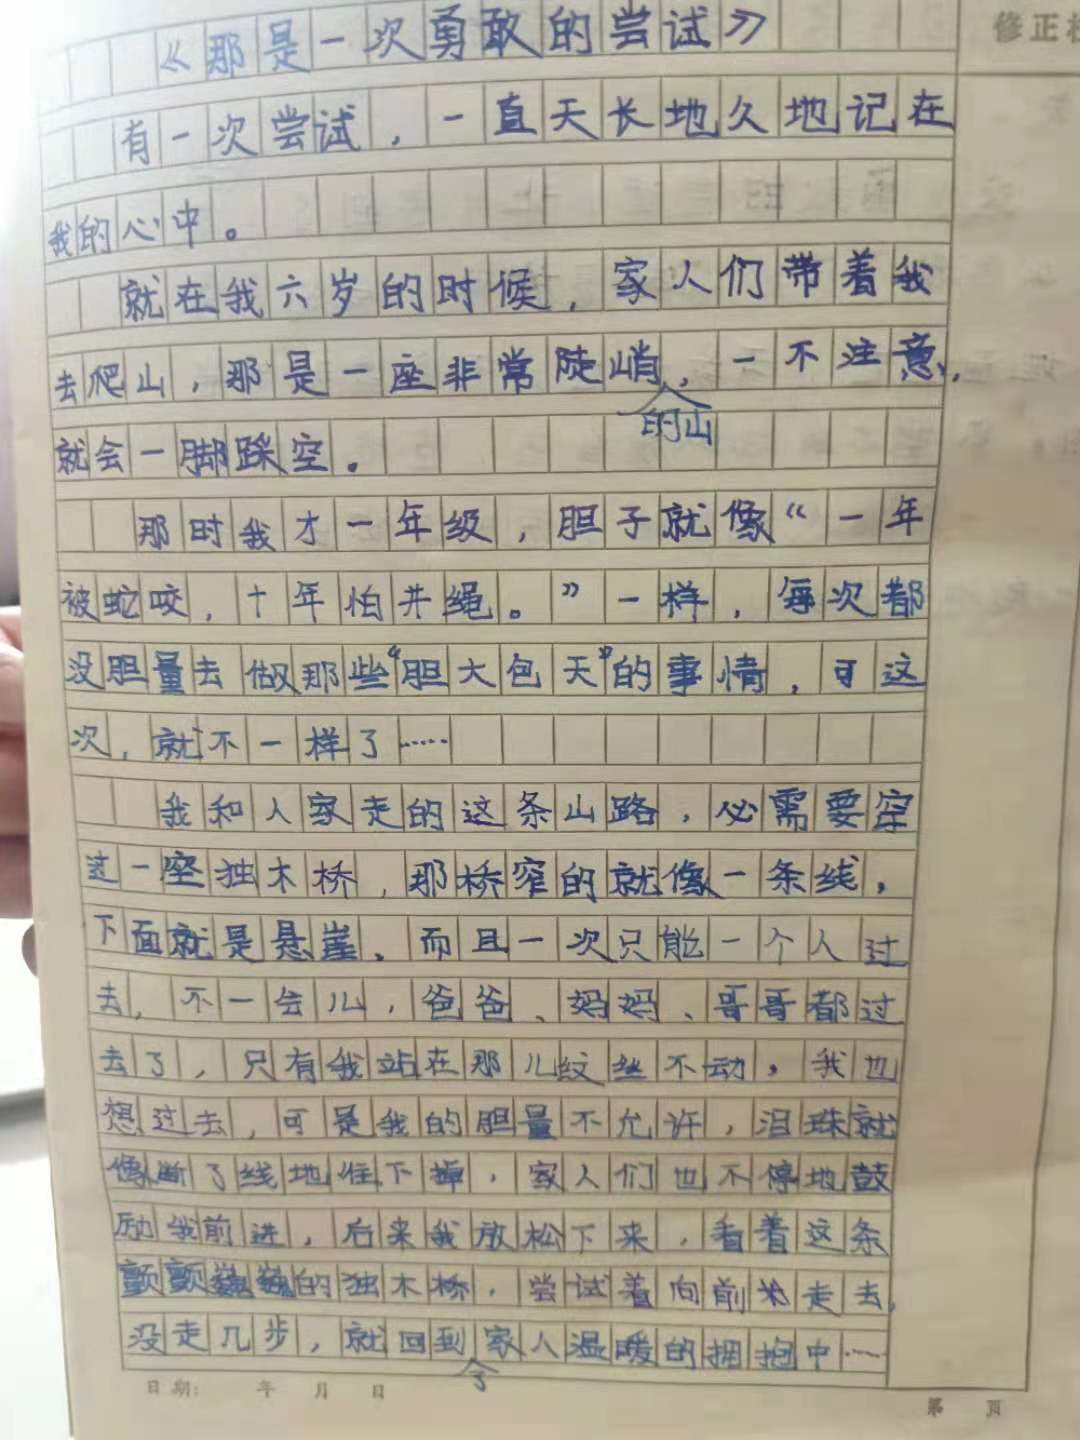 《那是一次勇敢的尝试》
修正
有一次尝试，一直天长地久地记在
我的心中。
就在我六岁的时候，家人们带着我
去爬山，那是一座非常陡峭的山，一不注意，
就会一脚踩空。
那时我才一年级，胆子就像“一年
被蛇咬，十年怕井绳。”一样，每次都
没胆量去做那些“胆大包天”的事情，可这
次，就不一样了……
我和人家走的这条山路，必需要穿
过一座独木桥，那桥窄的就像一条线，
下面就是悬崖，而且一次只能一个人过
去，不一会儿，爸爸、妈妈、哥哥都过
去了，只有我站在那儿纹丝不动，我也
想过去，可是我的胆量不允许，泪珠就
像断了线地往下掉，家人们也不停地鼓
励我前进，后来我放松下来，看着这条
颤颤巍巍的独木桥，尝试着向前走去，
没走几步，就回到了家人温暖的拥抱中……
日期： 年 月 日
第 页